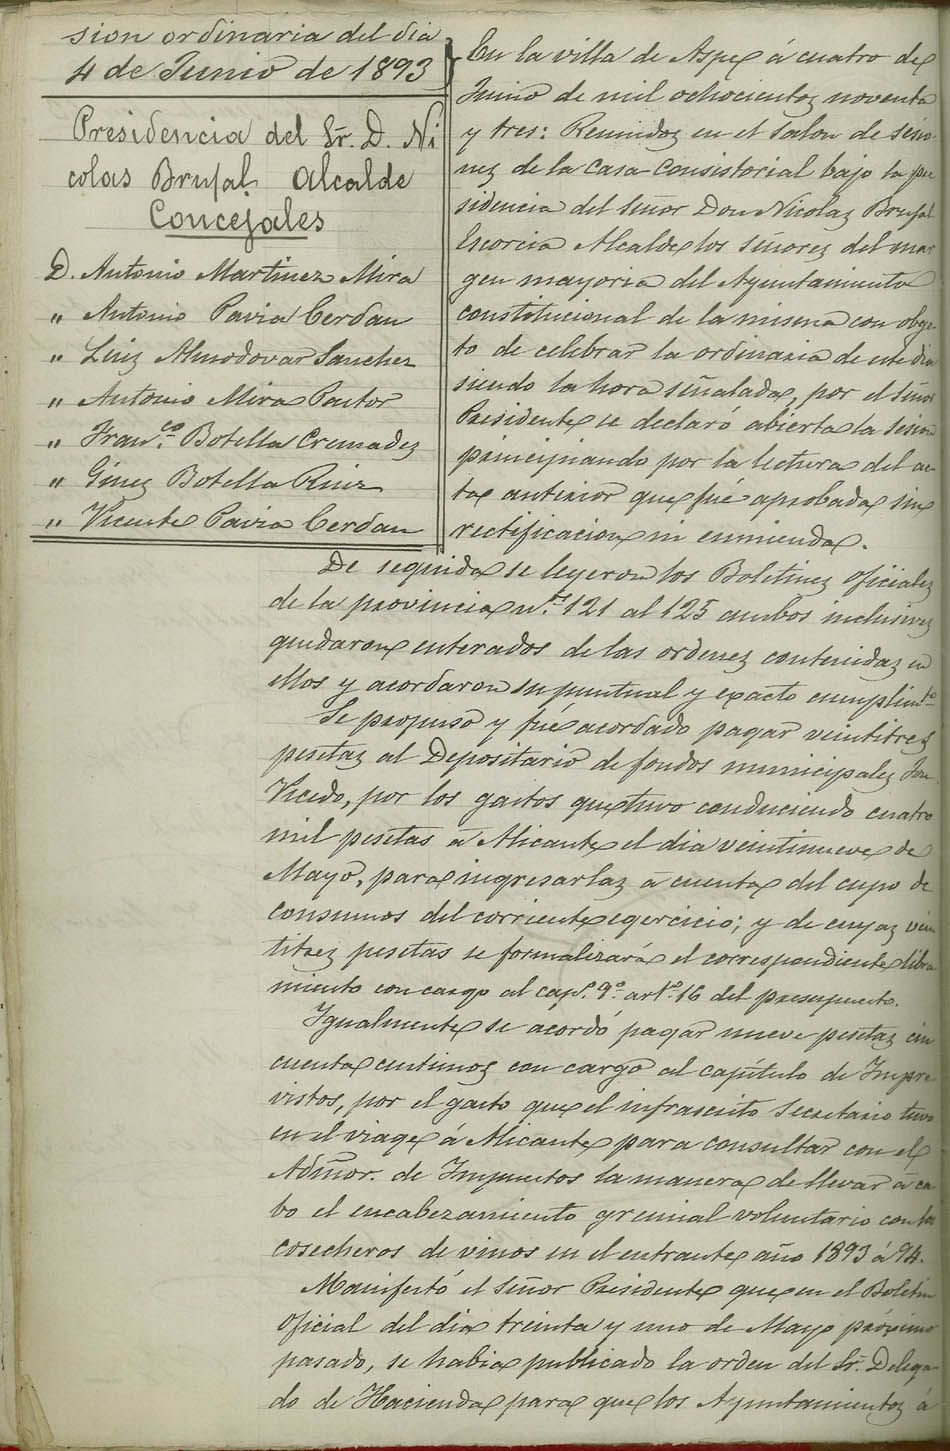 sion ordinaria del dia
4 de Junio de 1893
Presidencia del Sr. D. Ni
colas Brufal Alcalde
Concejales
D. Antonio Martinez Mira
" Antonio Pavia Cerdan
" Luiz Almodovar Sanchez
" Antonio Mira Pastor
" Franco. Botella Cremadez
" Ginez Botella Ruiz
" Vicente Pavia Cerdan
En la villa de Aspe á cuatro de
Junio de mil ochocientoz noventa
y tres: Reunidoz en el salon de sesio
nez de la Casa Consistorial bajo la pre
sidencia del Señor Don Nicolaz Brufal
Escorcia Alcalde los señorez del mar
gen mayoria del Ayuntamiento
constitucional de la misma con obge
to de celebrar la ordinaria de este dia
siendo la hora señalada, por el señor
Presidente se declaró abierta la sesion
principiando por la lectura del ac
ta anterior que fué aprobada sin
rectificacion ni enmienda.
De seguida se leyeron los Boletinez oficialez
de la provincia nos. 121 al 125 ambos inclusivez
quedaron enterados de las ordenez contenidaz en
ellos y acordaron su puntual y exacto cumplimto
Se propuso y fué acordado pagar veintitrez
pesetaz al Depositario de fondos municipalez Don
Vicedo, por los gastos que tuvo conduciendo cuatro
mil pesetas á Alicante el dia veintinueve de
Mayo, para ingresarlaz á cuenta del cupo de
consumos del corriente egercicio; y de cuyaz vein
titrez pesetas se formalizará el correspondiente libra
miento con cargo al capo. 9o. arto. 16 del presupuesto.
Igualmente se acordó pagar nueve pesetaz cin
cuenta centimoz con cargo al capítulo de Impre
vistos, por el gasto que el infrascrito Secretario tuvo
en el viage á Alicante para consultar con el
Admor. de Impuestos la manera de llevar á ca
bo el encabezamiento gremial voluntario con los
cosecheros de vinos en el entrante año 1893 á 94.
Manifestó el Señor Presidente que en el Boletin
Oficial del dia treinta y uno de Mayo próximo
pasado, se habia publicado la orden del Sr. Delega
do de Hacienda para que los Ayuntamientoz á